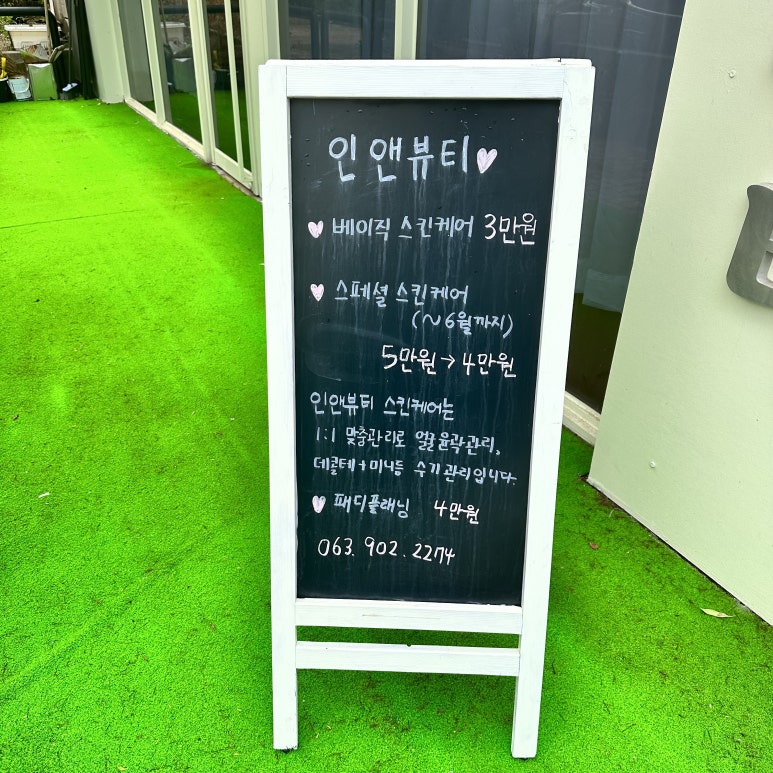 인앤뷰티
베이직 스킨케어 3만원
스페셜 스킨케어
(~6월까지)
5만원→4만원
인앤뷰티 스킨케어는
1:1 맞춤관리로 얼굴윤곽관리,
데콜테+미니등 수기관리입니다.
패디플래닝 4만원
063.902.2274